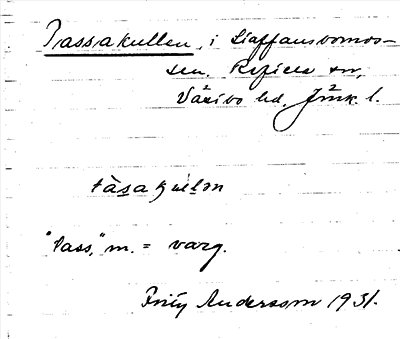 Tassakullen, i Staffansvomos-
sen. Reftele sn,
Västbo hd, Jönk. l.
tàsakullən
"Tass," m. = varg.
Fritz Andersson 1931.